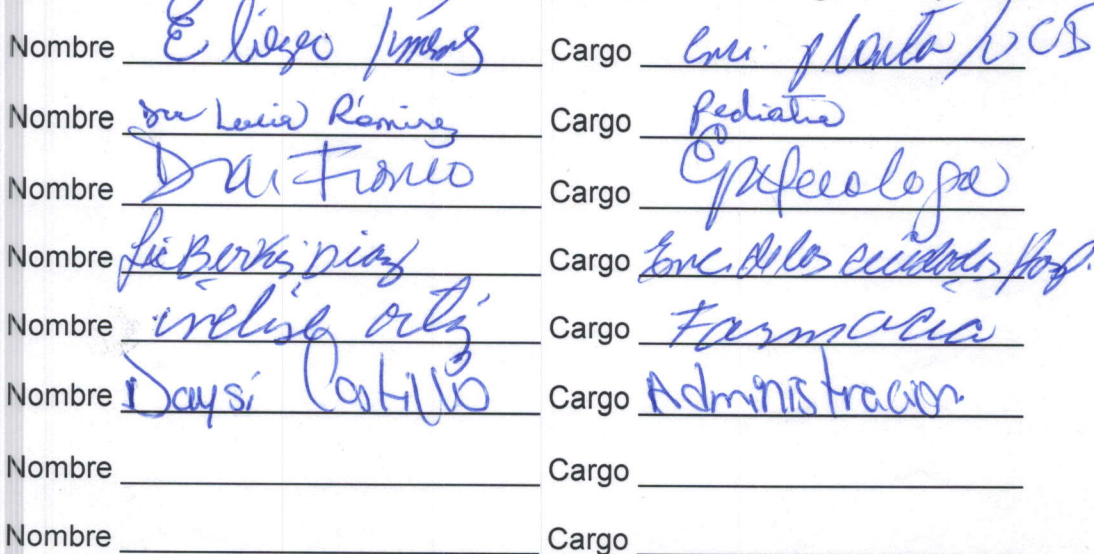 Nombre Eligeo Jimenez Cargo Enc. planta
Nombre Dra Lucia Ramirez Cargo Pediatra
Nombre Dra Franco Cargo
Nombre Lic Berkis Diaz Cargo Enc. de los cuidados Hosp.
Nombre ortiz Cargo Farmacia
Nombre Daysi Castillo Cargo Administracion
Nombre Cargo
Nombre Cargo